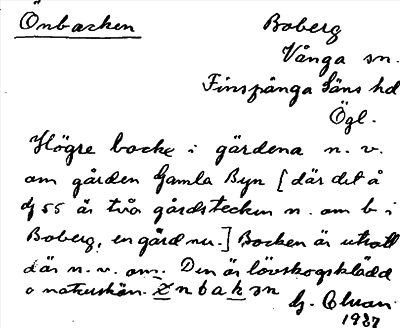 Önbacken
Boberg
Vånga sn.
Finspånga läns hd
Ögl.
Högre backe i gärdena n. v.
om gården Gamla Byn [där det å
55 är två gårdstecken n. om b i
Boberg, en gård nu.] Backen är utsatt
där n. v. om. Den är lövskogsklädd
o naturskön.
1937